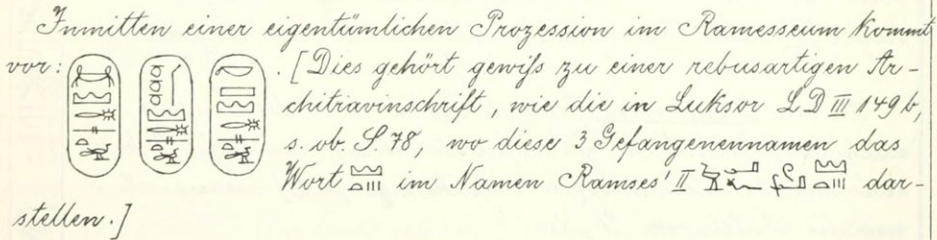 Inmitten einer eigentümlichen Prozession im Ramesseum kommt
vor: . [Dies gehört gewiß zu einer rebusartigen Ar-
chitravinschrift, wie die in Luksor LD III 149b,
s. ob. S. 78, wo diese 3 Gefangenennamen das
Wort im Namen Ramses' II dar-
stellen.]